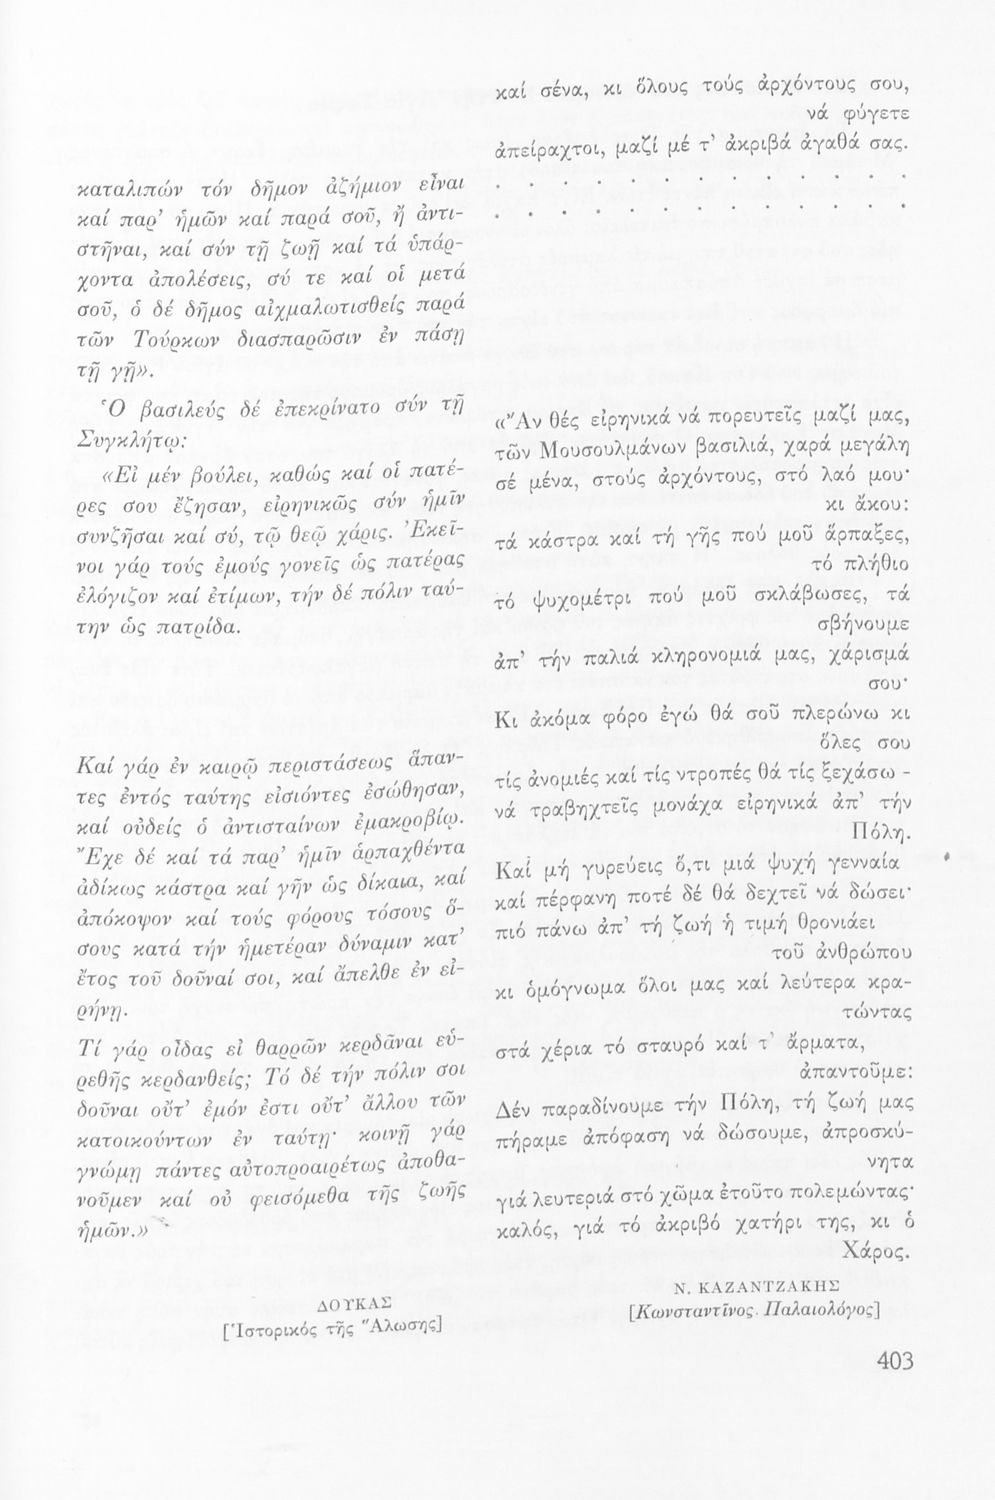 καταλιπών τόν δῆμον ἀζήμιον εἶναι
καί παρ’ ἡμῶν καί παρά σοῦ, ἤ ἀντι-
στῆναι, καί σύν τῇ ζωῇ καί τά ὑπάρ-
χοντα ἀπολέσεις, σύ τε καί οἱ μετά
σοῦ, ὁ δέ δῆμος αἰχμαλωτισθείς παρά
τῶν Τούρκων διασπαρῶσιν ἐν πάσῃ
τῇ γῇ».
Ὁ βασιλεύς δέ ἐπεκρίνατο σύν τῇ
Συγκλήτῳ:
«Εἰ μέν βούλει, καθώς καί οἱ πατέ-
ρες σου ἔζησαν, εἰρηνικῶς σύν ἡμῖν
συνζῆσαι καί σύ, τῷ θεῷ χάρις. Ἐκεῖ-
νοι γάρ τούς ἐμούς γονεῖς ὡς πατέρας
ἐλόγιζον καί ἐτίμων, τήν δέ πόλιν ταύ-
την ὡς πατρίδα.
Καί γάρ ἐν καιρῷ περιστάσεως ἅπαν-
τες ἐντός ταύτης εἰσιόντες ἐσώθησαν,
καί οὐδείς ὁ ἀντισταίνων ἐμακροβίω.
Ἔχε δέ καί τά παρ’ ἡμῖν ἁρπαχθέντα
ἀδίκως κάστρα καί γῆν ὡς δίκαια, καί
ἀπόκοψον καί τούς φόρους τόσους ὅ-
σους κατά τήν ἡμετέραν δύναμιν κατ’
ἔτος τοῦ δοῦναί σοι, καί ἄπελθε ἐν εἰ-
ρήνῃ.
Τί γάρ οἶδας εἰ θαρρῶν κερδᾶναι εὑ-
ρεθῇς κερδανθείς; Τό δέ τήν πόλιν σοι
δοῦναι οὔτ’ ἐμόν ἐστι οὔτ’ ἄλλου τῶν
κατοικούντων ἐν ταύτῃ· κοινῇ γάρ
γνώμῃ πάντες αὐτοπροαιρέτως ἀποθα-
νοῦμεν καί οὐ φεισόμεθα τῆς ζωῆς
ἡμῶν.»
ΔΟΥΚΑΣ
[Ἱστορικός τῆς Ἅλωσης]
καί σένα, κι ὅλους τούς ἀρχόντους σου,
νά φύγετε
ἀπείραχτοι, μαζί μέ τ’ ἀκριβά ἀγαθά σας.
. . . . . . . . . . . . .
. . . . . . . . . . . . .
«Ἄν θές εἰρηνικά νά πορευτεῖς μαζί μας,
τῶν Μουσουλμάνων βασιλιά, χαρά μεγάλη
σέ μένα, στούς ἀρχόντους, στό λαό μου·
κι ἄκου:
τά κάστρα καί τή γῆς πού μοῦ ἅρπαξες,
τό πλήθιο
τό ψυχομέτρι πού μοῦ σκλάβωσες, τά
σβήνουμε
ἀπ’ τήν παλιά κληρονομιά μας, χάρισμά
σου·
Κι ἀκόμα φόρο ἐγώ θά σοῦ πλερώνω κι
ὅλες σου
τίς ἀνομιές καί τίς ντροπές θά τίς ξεχάσω -
νά τραβηχτεῖς μονάχα εἰρηνικά ἀπ’ τήν
Πόλη.
Καί μή γυρεύεις ὅ,τι μιά ψυχή γενναία
καί πέρφανη ποτέ δέ θά δεχτεῖ νά δώσει·
πιό πάνω ἀπ’ τή ζωή ἡ τιμή θρονιάει
τοῦ ἀνθρώπου
κι ὁμόγνωμα ὅλοι μας καί λεύτερα κρα-
τώντας
στά χέρια τό σταυρό καί τ’ ἄρματα,
ἀπαντοῦμε:
Δέν παραδίνουμε τήν Πόλη, τή ζωή μας
πήραμε ἀπόφαση νά δώσουμε, ἀπροσκύ-
νητα
γιά λευτεριά στό χῶμα ἐτοῦτο πολεμώντας·
καλός, γιά τό ἀκριβό χατήρι της, κι ὁ
Χάρος.
Ν. ΚΑΖΑΝΤΖΑΚΗΣ
[Κωνσταντῖνος Παλαιολόγος]
403